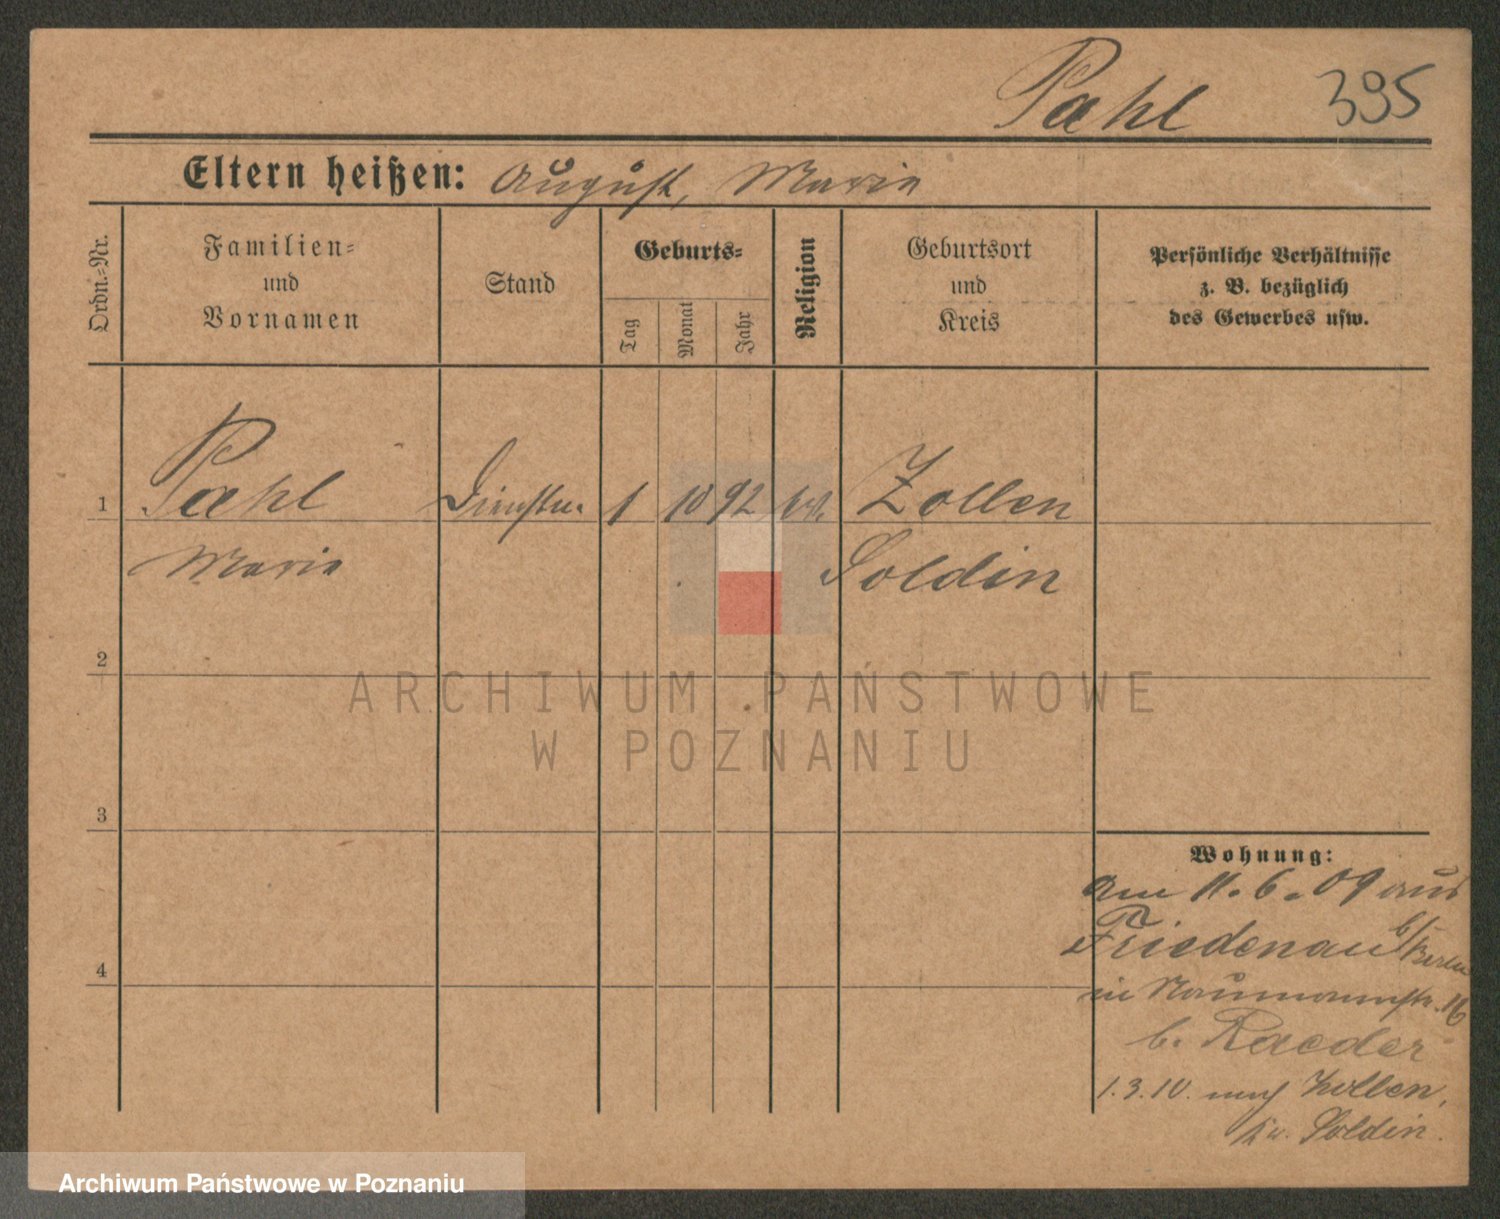 Pahl 395
Eltern heißen: August, Marie
Ordn.-Nr.
Familien-
und
Vornamen
Stand
Geburts-
Tag
Monat
Jahr
Religion
Geburtsort
und
Kreis
Persönliche Verhältnisse
z. B. bezüglich
des Gewerbes usw.
1 Pahl Dienstm. 1 10 92 Zollen
Marie Soldin
2
ARCHIWUM PAŃSTWOWE
W POZNANIU
3
Wohnung:
am 11.6.09 aus
Friedenau b/Berlin
4
in Naumannstr. 16
b. Raeder
1.3.10. nach Zollen,
Kr. Soldin.
Archiwum Państwowe w Poznaniu